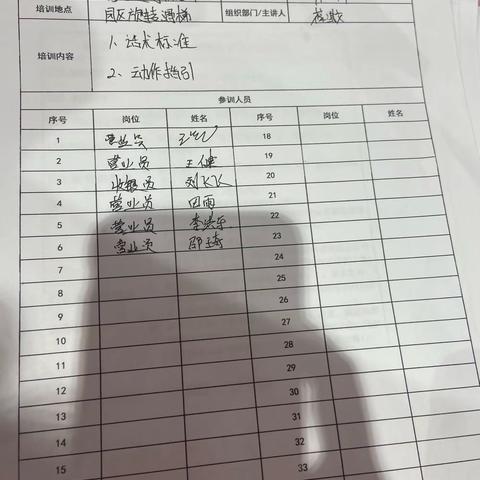 培训地点 园区旋转滑梯 组织部门/主讲人
培训内容 1、话术标准
2、动作指引
参训人员
序号 岗位 姓名 序号 岗位 姓名
1 营业员 18
2 营业员 王健 19
3 收银员 刘KK 20
4 营业员 田雨 21
5 营业员 22
6 营业员 23
7 24
8 25
9 26
10 27
11 28
12 29
13 30
14 31
15 32
33